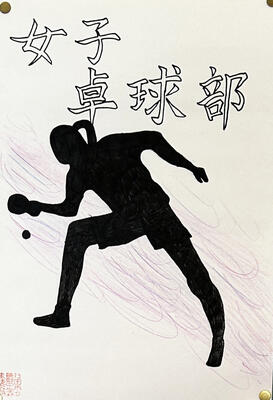 女子
卓球部